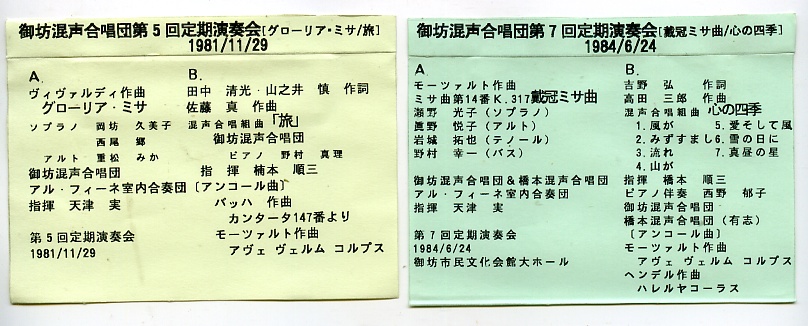 御坊混声合唱団第5回定期演奏会[グローリア・ミサ/旅]
1981/11/29
A.
ヴィヴァルディ作曲
グローリア・ミサ
ソプラノ 岡坊 久美子
西尾 郷
アルト 重松 みか
御坊混声合唱団
アル・フィーネ室内合奏団
指揮 天津 実
第5回定期演奏会
1981/11/29
B.
田中 清光・山之井 慎 作詞
佐藤 真 作曲
混声合唱組曲「旅」
御坊混声合唱団
ピアノ 野村 真理
指揮 楠本 順三
[アンコール曲]
バッハ 作曲
カンタータ147番より
モーツァルト作曲
アヴェ ヴェルム コルプス
御坊混声合唱団第7回定期演奏会[戴冠ミサ曲/心の四季]
1984/6/24
A.
モーツァルト作曲
ミサ曲第14番K.317戴冠ミサ曲
瀬野 光子(ソプラノ)
眞野 悦子(アルト)
岩城 拓也(テノール)
野村 幸一(バス)
御坊混声合唱団&橋本混声合唱団
アル・フィーネ室内合奏団
指揮 天津 実
第7回定期演奏会
1984/6/24
御坊市民文化会館大ホール
B.
吉野 弘 作詞
高田 三郎 作曲
混声合唱組曲 心の四季
1.風が 5.愛そして風
2.みずすまし 6.雪の日に
3.流れ 7.真昼の星
4.山が
指揮 橋本 順三
ピアノ伴奏 西野 郁子
御坊混声合唱団
橋本混声合唱団(有志)
[アンコール曲]
モーツァルト作曲
アヴェ ヴェルム コルプス
ヘンデル作曲
ハレルヤコーラス